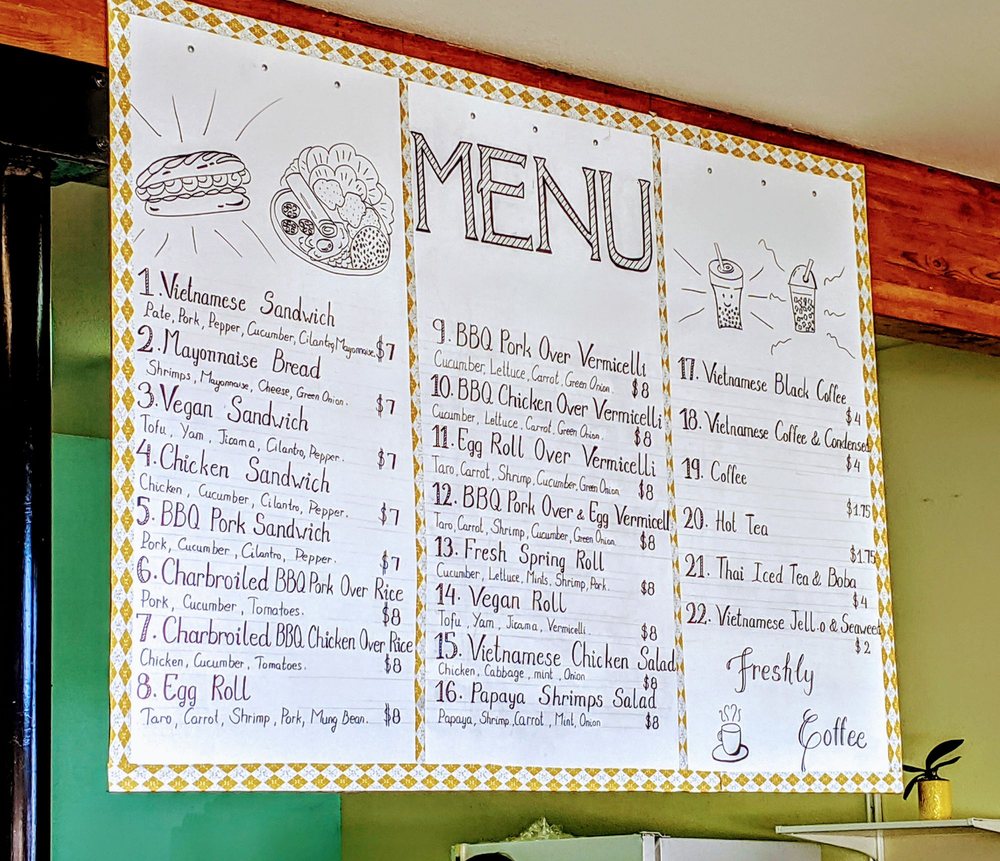 1. Vietnamese Sandwich
Pate, Pork, Pepper, Cucumber, Cilantro, Mayonnaise. $7
2. Mayonnaise Bread
Shrimps, Mayonnaise, Cheese, Green Onion. $7
3. Vegan Sandwich
Tofu, Yam, Jicama, Cilantro, Pepper. $7
4. Chicken Sandwich
Chicken, Cucumber, Cilantro, Pepper. $7
5. BBQ Pork Sandwich
Pork, Cucumber, Cilantro, Pepper. $7
6. Charbroiled BBQ Pork Over Rice
Pork, Cucumber, Tomatoes. $8
7. Charbroiled BBQ Chicken Over Rice
Chicken, Cucumber, Tomatoes. $8
8. Egg Roll
Taro, Carrot, Shrimp, Pork, Mung Bean. $8
MENU
9. BBQ Pork Over Vermicelli
Cucumber, Lettuce, Carrot, Green Onion $8
10. BBQ Chicken Over Vermicelli
Cucumber, Lettuce, Carrot, Green Onion. $8
11. Egg Roll Over Vermicelli
Taro, Carrot, Shrimp, Cucumber, Green Onion $8
12. BBQ Pork Over & Egg Vermicell
Taro, Carrot, Shrimp, Cucumber, Green Onion $8
13. Fresh Spring Roll
Cucumber, Lettuce, Mints, Shrimp, Pork. $8
14. Vegan Roll
Tofu, Yam, Jicama, Vermicelli. $8
15. Vietnamese Chicken Salad
Chicken, Cabbage, mint, Onion $8
16. Papaya Shrimps Salad
Papaya, Shrimp, Carrot, Mint, Onion $8
17. Vietnamese Black Coffee
$4
18. Vietnamese Coffee & Condensed
$4
19. Coffee
$1.75
20. Hot Tea
$1.75
21. Thai Iced Tea & Boba
$4
22. Vietnamese Jell.o & Seaweed
$2
Freshly
Coffee